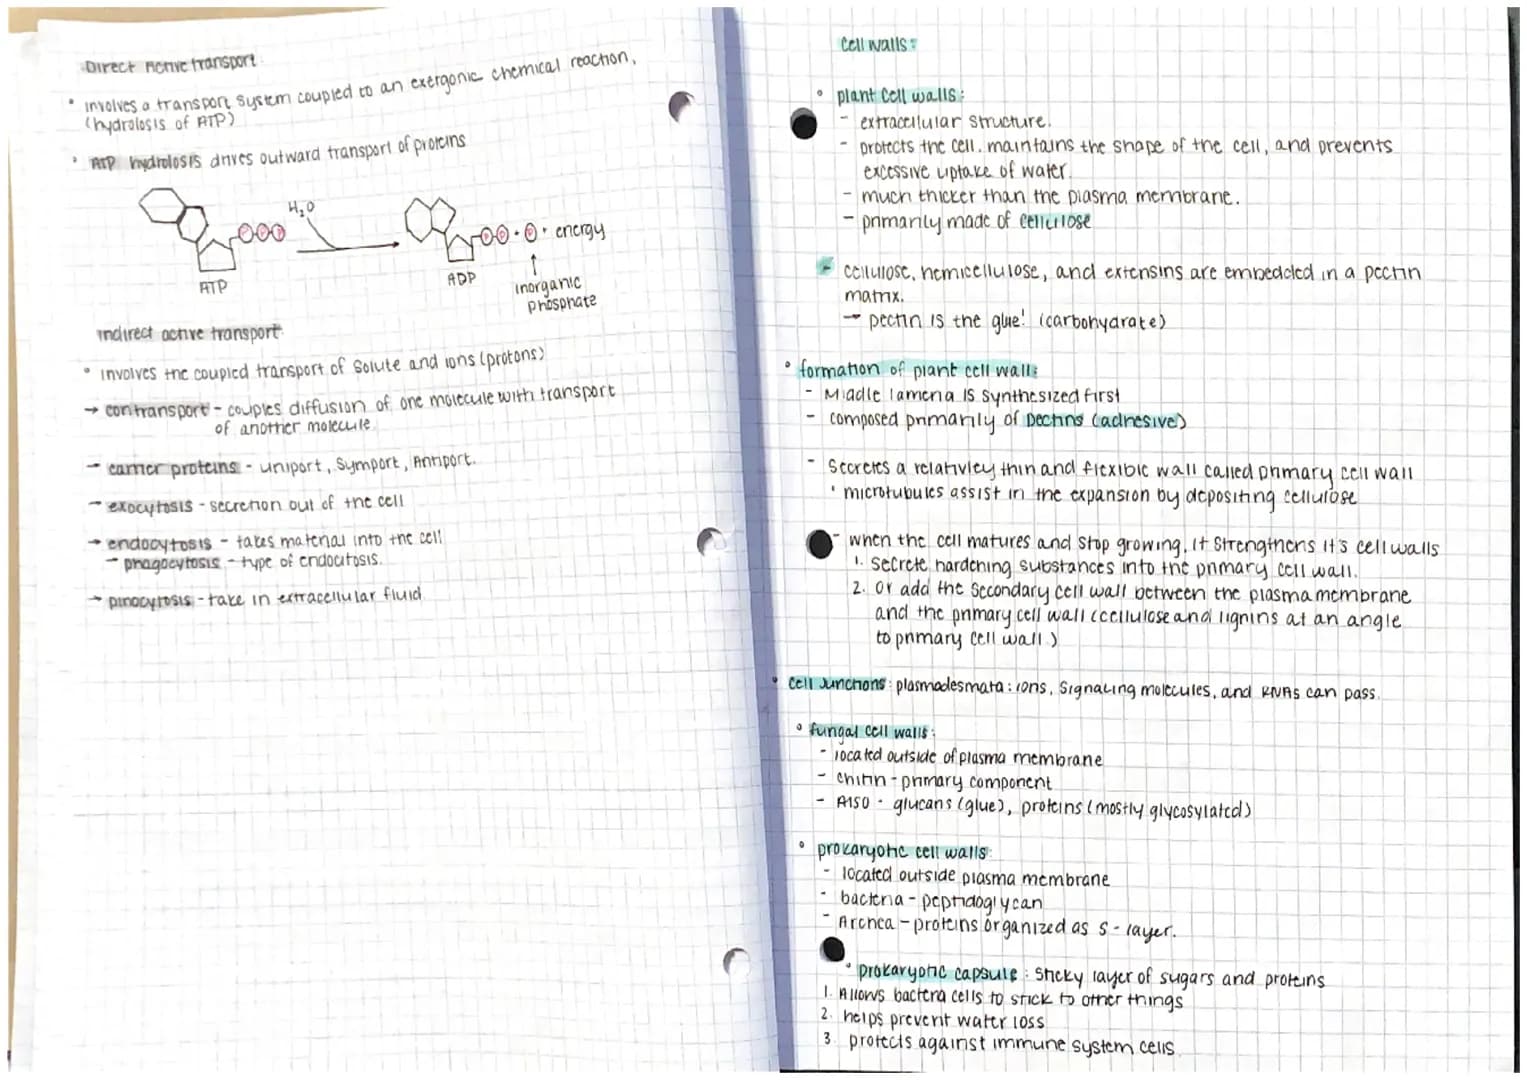 Direct Active transport
• involves a transport system coupled to an exergonic chemical reaction,
(hydrolosis of ATP)
• ATP hydrolosis drives outward transport of proteins
H₂O
P P P
P P + P + energy
ATP
ADP
inorganic
phosphate
indirect active transport:
• involves the coupled transport of solute and ions (protons)
→ contransport - couples diffusion of one molecule with transport
of another molecule
→ carrier proteins - uniport, symport, Antiport.
→ exocytosis - secretion out of the cell
→ endocytosis - takes material into the cell
→ phagocytosis - type of endocitosis.
→ pinocytosis - take in extracellular fluid
Cell walls:
• plant cell walls:
- extracellular structure.
- protects the cell. maintains the shape of the cell, and prevents
excessive uptake of water.
- much thicker than the plasma membrane.
- primarily made of cellulose
- cellulose, hemicellulose, and extensins are embedded in a pectin
matrix.
→ pectin is the glue! (carbohydrate)
• formation of plant cell wall:
- Middle lamena is synthesized first
- composed primarily of pectins (adhesive)
- Secretes a relativley thin and flexible wall called primary cell wall
• microtubules assist in the expansion by depositing cellulose
- when the cell matures and stop growing, it strengthens it's cell walls
1. secrete hardening substances into the primary cell wall.
2. or add the secondary cell wall between the plasma membrane
and the primary cell wall (cellulose and lignins at an angle
to primary cell wall.)
• Cell Junctions: plasmadesmata: ions, signaling molecules, and RNAs can pass.
• fungal cell walls:
- located outside of plasma membrane
- chitin - primary component
- Also - glucans (glue), proteins (mostly glycosylated)
• prokaryotic cell walls:
- located outside plasma membrane
- bacteria - peptidoglycan
- Archea - proteins organized as s-layer.
• prokaryotic capsule: sticky layer of sugars and proteins
1. Allows bactera cells to stick to other things
2. helps prevent water loss
3. protects against immune system cells